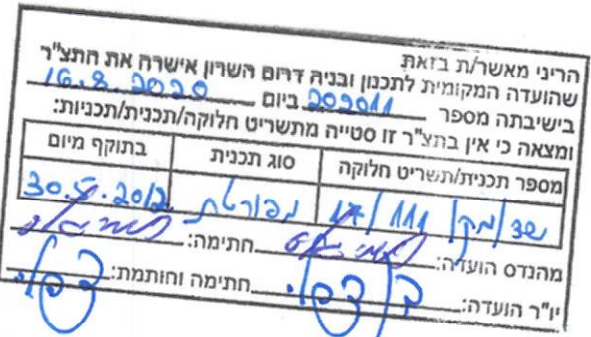 הריני מאשר/ת בזאת
שהועדה המקומית לתכנון ובניה דרום השרון אישרה את התצ"ר
בישיבתה מספר 202011 ביום 16.8.2020
ומצאה כי אין בתצ"ר זו סטייה מתשריט חלוקה/תכנית/תכניות:
מספר תכנית/תשריט חלוקה סוג תכנית בתוקף מיום
שד/מק/111/17 מפורטת 30.5.2012
מהנדס הועדה: חתימה:
יו"ר הועדה: חתימה וחותמת: